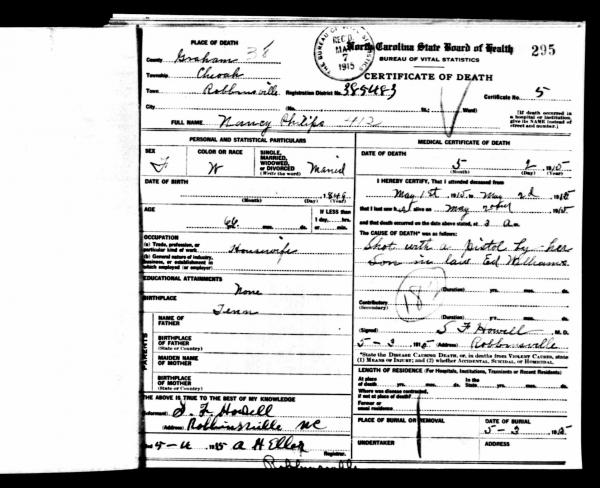 PLACE OF DEATH
County Graham
Township Cheoah
Town Robbinsville Registration District No. 385483 Certificate No. 5
City (No. St.; Ward)
REC'D
MAY
7
1915
THE BUREAU OF VITAL STATISTICS
North Carolina State Board of Health 295
BUREAU OF VITAL STATISTICS
CERTIFICATE OF DEATH
[If death occurred in
a hospital or institution,
give its NAME instead of
street and number.]
FULL NAME Nancy Philips 412
PERSONAL AND STATISTICAL PARTICULARS
SEX
F
COLOR OR RACE
W
SINGLE,
MARRIED,
WIDOWED,
or DIVORCED
(Write the word)
Married
DATE OF BIRTH
1848
(Month) (Day) (Year)
AGE
66
yrs. mos. ds.
If LESS than
1 day, hrs.
or min.
OCCUPATION
(a) Trade, profession, or
particular kind of work Housewife
(b) General nature of industry,
business, or establishment in
which employed (or employer)
EDUCATIONAL ATTAINMENTS
None
BIRTHPLACE
Tenn
PARENTS
NAME OF
FATHER
BIRTHPLACE
OF FATHER
(State or Country)
MAIDEN NAME
OF MOTHER
BIRTHPLACE
OF MOTHER
(State or Country)
THE ABOVE IS TRUE TO THE BEST OF MY KNOWLEDGE
(Informant) S. F. Howell
(Address) Robbinsville NC
Registrar.
Robbinsville
MEDICAL CERTIFICATE OF DEATH
DATE OF DEATH
5 2 1915
(Month) (Day) (Year)
I HEREBY CERTIFY, That I attended deceased from
May 1st 1915 to May 2d 1915
that I last saw her alive on May 2d 1915
and that death occurred on the date above stated, at 3 a m.
The CAUSE OF DEATH* was as follows:
Shot with a pistol by her
Son in law Ed Williams
(Duration) yrs. mos. ds.
Contributory
(Secondary)
(Duration) yrs. mos. ds.
(Signed) S F Howell M. D.
5-3 1915 (Address) Robbinsville
*State the DISEASE CAUSING DEATH, or, in deaths from VIOLENT CAUSES, state
(1) MEANS OF INJURY; and (2) whether ACCIDENTAL, SUICIDAL, or HOMICIDAL.
LENGTH OF RESIDENCE (For Hospitals, Institutions, Transients or Recent Residents)
At place
of death yrs. mos. ds. In the
State yrs. mos. ds.
Where was disease contracted,
if not at place of death?
Former or
usual residence
PLACE OF BURIAL OR REMOVAL
DATE OF BURIAL
5-3 1915
UNDERTAKER
ADDRESS